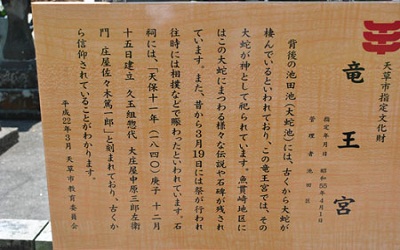 天草市指定文化財
竜王宮
指定年月日 昭和55年4月1日
管理者 池田区
背後の池田池(大蛇池)には、古くから大蛇が
棲んでいるといわれており、この竜王宮では、その
大蛇が神として祀られています。魚貫崎地区に
はこの大蛇にまつわる様々な伝説や石碑が残され
ています。また、昔から3月19日には祭が行われ
往時には相撲などで賑わったといわれています。石
祠には、「天保十一年(一八四〇)庚子 十二月
十五日建立 久玉組惣代 大庄屋中原三郎左衛
門 庄屋佐々木篤一郎」と刻まれており、古くか
ら信仰されていることがわかります。
平成22年3月 天草市教育委員会